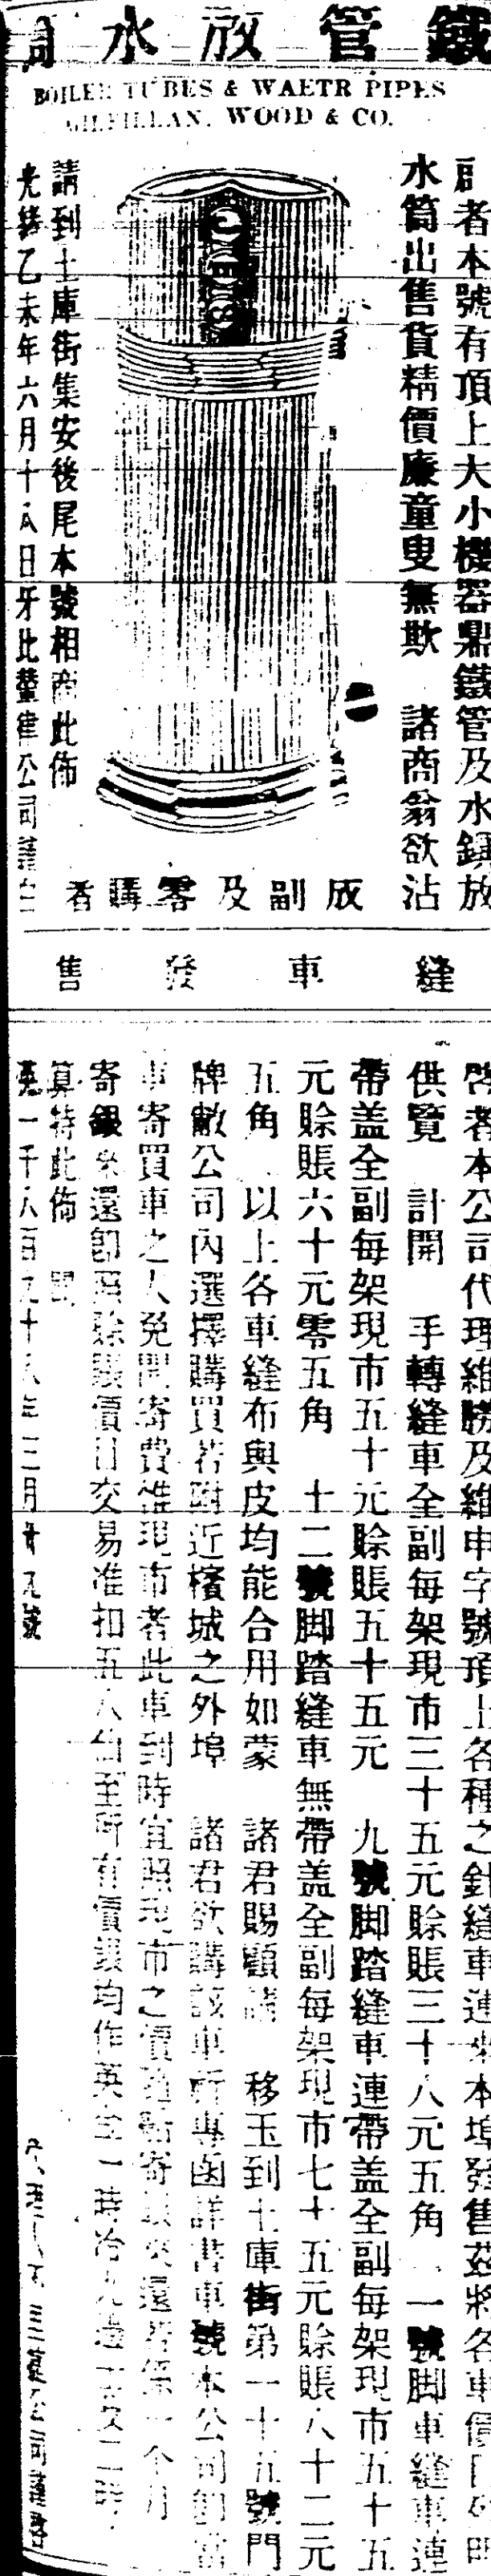 鐵管放水
BOILER TUBES & WAETR PIPES
GILFILLAN. WOOD & CO.
啟者本號有頂上大小機器鼎鐵管及水鎖放
水筒出售貨精價廉童叟無欺 諸商翁欲沾
成副及零購者
請到土庫街集安後尾本號相商此佈
光緒乙未年六月十八日牙比籠律公司謹白
縫車發售
啓者本公司代理維勝及維申字號頂上各種之針縫車連來本埠發售茲將各車價目列明
供覽 計開 手轉縫車全副每架現市三十五元賒賬三十八元五角 一號脚車縫車連
帶盖全副每架現市五十元賒賬五十五元 九號脚踏縫車連帶盖全副每架現市五十五
元賒賬六十元零五角 十二號脚踏縫車無帶盖全副每架現市七十五元賒賬八十二元
五角 以上各車縫布與皮均能合用如蒙 諸君賜顧請 移玉到土庫街第一十五號門
牌敝公司內選擇購買若附近檳城之外埠 諸君欲購該車祈專函詳書車號本公司卽當
車寄買車之人免問寄費惟現市者此車到時宜照現市之價 寄 還若第一个月
寄銀來還卽照賒賬價目交易准扣五八伯至所有價銀均作英 一時
算特此佈 聞
英一千八百九十八年三月廿九號
公司謹啓